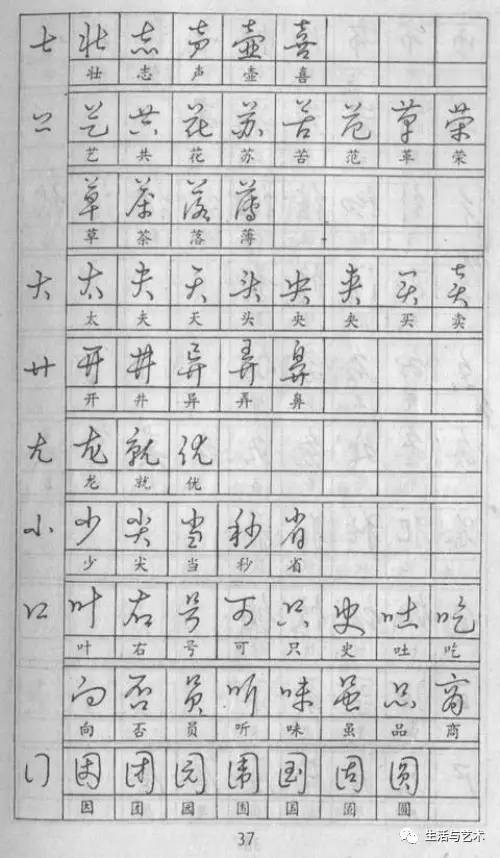 士 壮 志 声 壶 喜
壮 志 声 壶 喜
艹 艺 共 花 苏 苦 范 革 荣
艺 共 花 苏 苦 范 革 荣
草 茶 落 薄
草 茶 落 薄
大 太 夫 天 头 央 夹 买 卖
太 夫 天 头 央 夹 买 卖
廾 开 井 异 弄 鼻
开 井 异 弄 鼻
尤 龙 就 优
龙 就 优
小 少 尖 当 秒 省
少 尖 当 秒 省
口 叶 右 号 可 只 史 吐 吃
叶 右 号 可 只 史 吐 吃
向 否 员 听 味 虽 品 商
向 否 员 听 味 虽 品 商
囗 因 团 园 围 国 固 圆
因 团 园 围 国 固 圆
37
生活与艺术